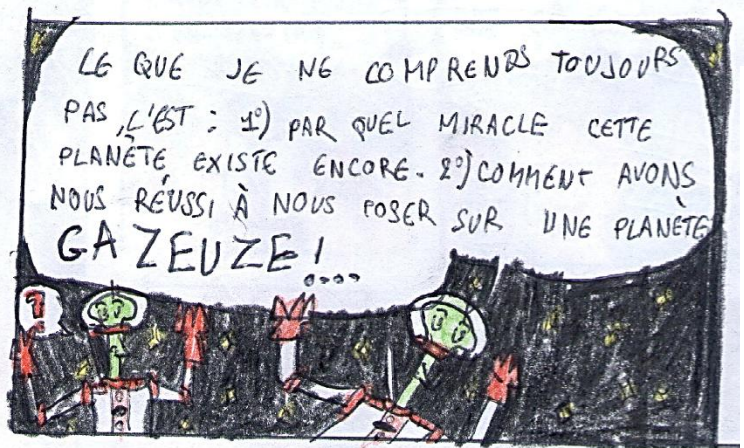 CE QUE JE NE COMPRENDS TOUJOURS
PAS, C'EST : 1°) PAR QUEL MIRACLE CETTE
PLANÈTE EXISTE ENCORE. 2°) COMMENT AVONS
NOUS RÉUSSI À NOUS POSER SUR UNE PLANÈTE
GAZEUZE !....
?